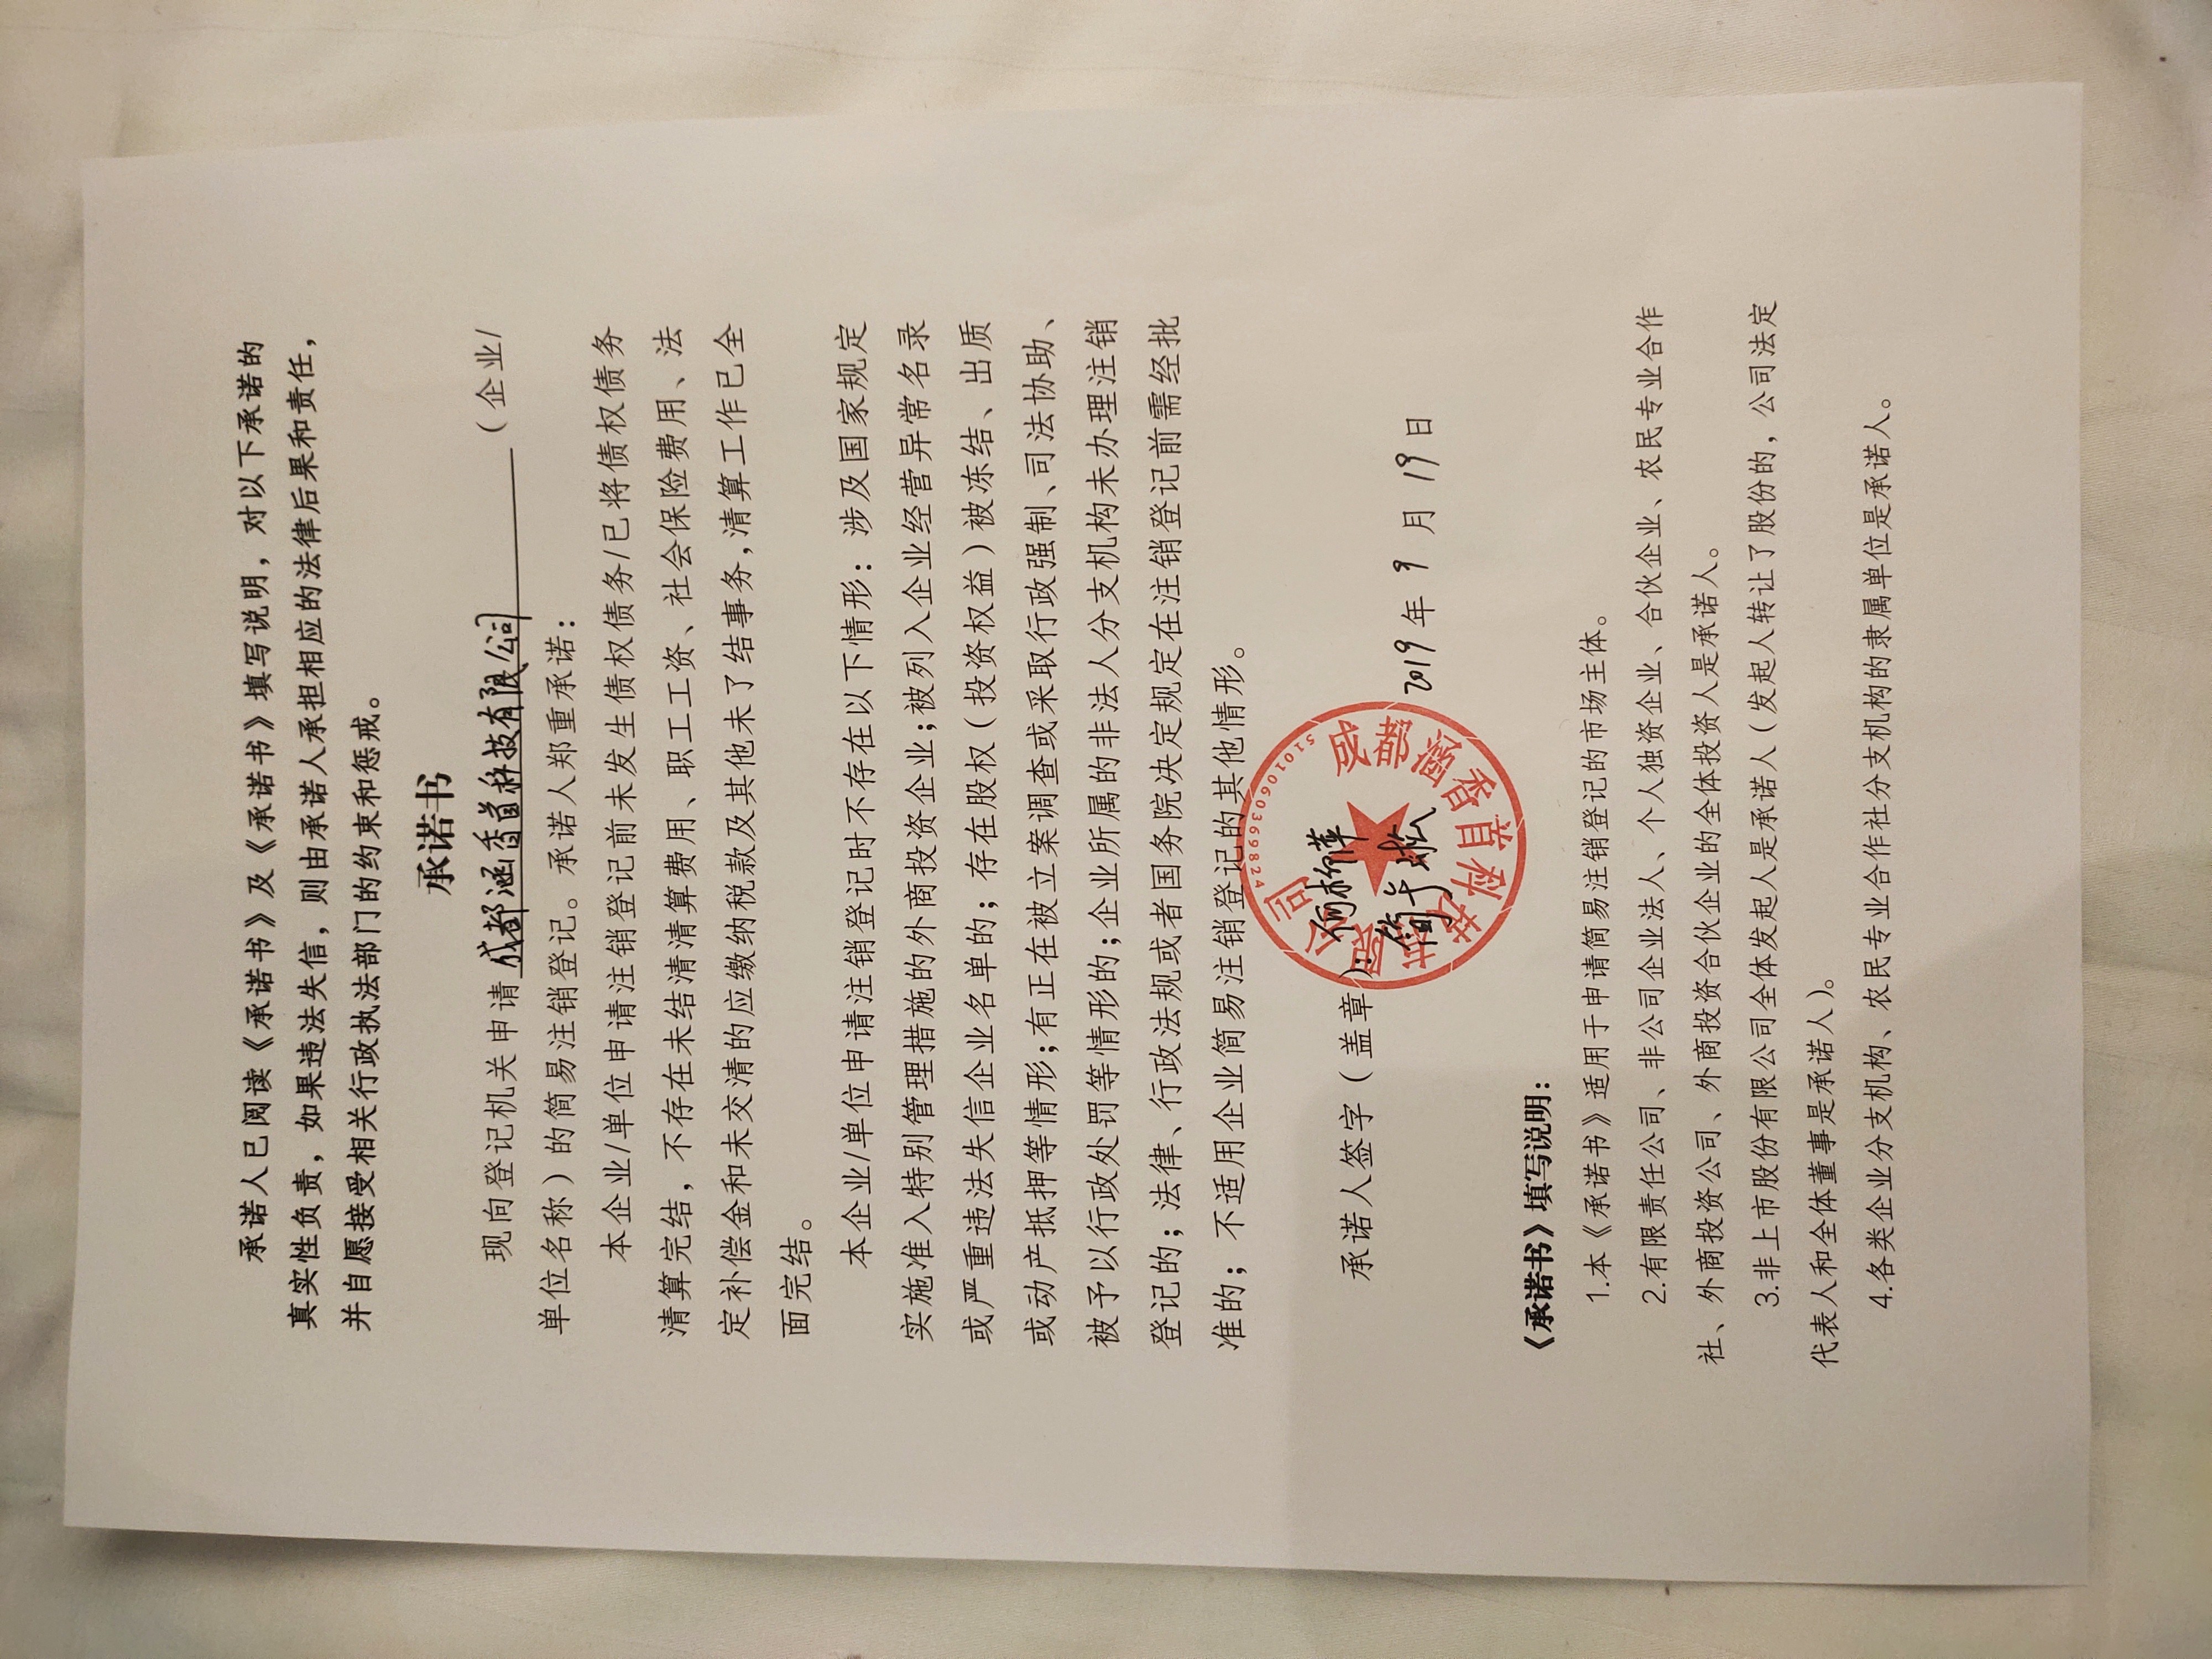 承诺人已阅读《承诺书》及《承诺书》填写说明，对以下承诺的
真实性负责，如果违法失信，则由承诺人承担相应的法律后果和责任，
并自愿接受相关行政执法部门的约束和惩戒。
承诺书
现向登记机关申请成都涵香首科技有限公司（企业/
单位名称）的简易注销登记。承诺人郑重承诺：
本企业/单位申请注销登记前未发生债权债务/已将债权债务
清算完结，不存在未结清清算费用、职工工资、社会保险费用、法
定补偿金和未交清的应缴纳税款及其他未了结事务,清算工作已全
面完结。
本企业/单位申请注销登记时不存在以下情形：涉及国家规定
实施准入特别管理措施的外商投资企业;被列入企业经营异常名录
或严重违法失信企业名单的；存在股权（投资权益）被冻结、出质
或动产抵押等情形;有正在被立案调查或采取行政强制、司法协助、
被予以行政处罚等情形的;企业所属的非法人分支机构未办理注销
登记的；法律、行政法规或者国务院决定规定在注销登记前需经批
准的；不适用企业简易注销登记的其他情形。
承诺人签字（盖章）：
成都涵香首科技有限公司
5101060369824
2019年9月19日
《承诺书》填写说明：
1.本《承诺书》适用于申请简易注销登记的市场主体。
2.有限责任公司、非公司企业法人、个人独资企业、合伙企业、农民专业合作
社、外商投资公司、外商投资合伙企业的全体投资人是承诺人。
3.非上市股份有限公司全体发起人是承诺人（发起人转让了股份的，公司法定
代表人和全体董事是承诺人）。
4.各类企业分支机构、农民专业合作社分支机构的隶属单位是承诺人。